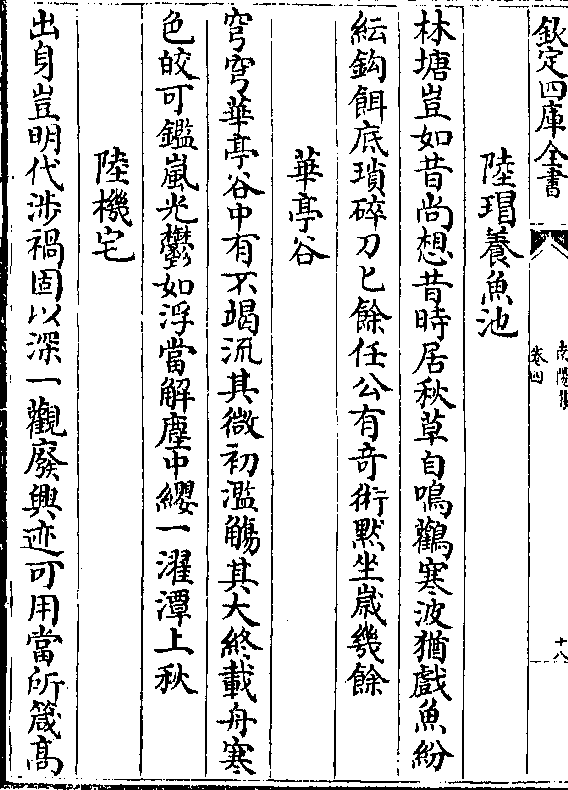 欽定四庫全書
南陽集
卷四
十八
陸瑁養魚池
林塘豈如昔尚想昔時居秋草自鳴鸛寒波猶戲魚紛
紜鈎餌底瑣碎刀匕餘任公有奇術默坐嵗幾餘
華亭谷
穹穹華亭谷中有不竭流其微初濫觴其大終載舟寒
色皎可鑑嵐光鬱如浮當解塵中纓一濯潭上秋
陸機宅
出身豈明代渉禍固以深一觀廢興迹可用當所箴髙